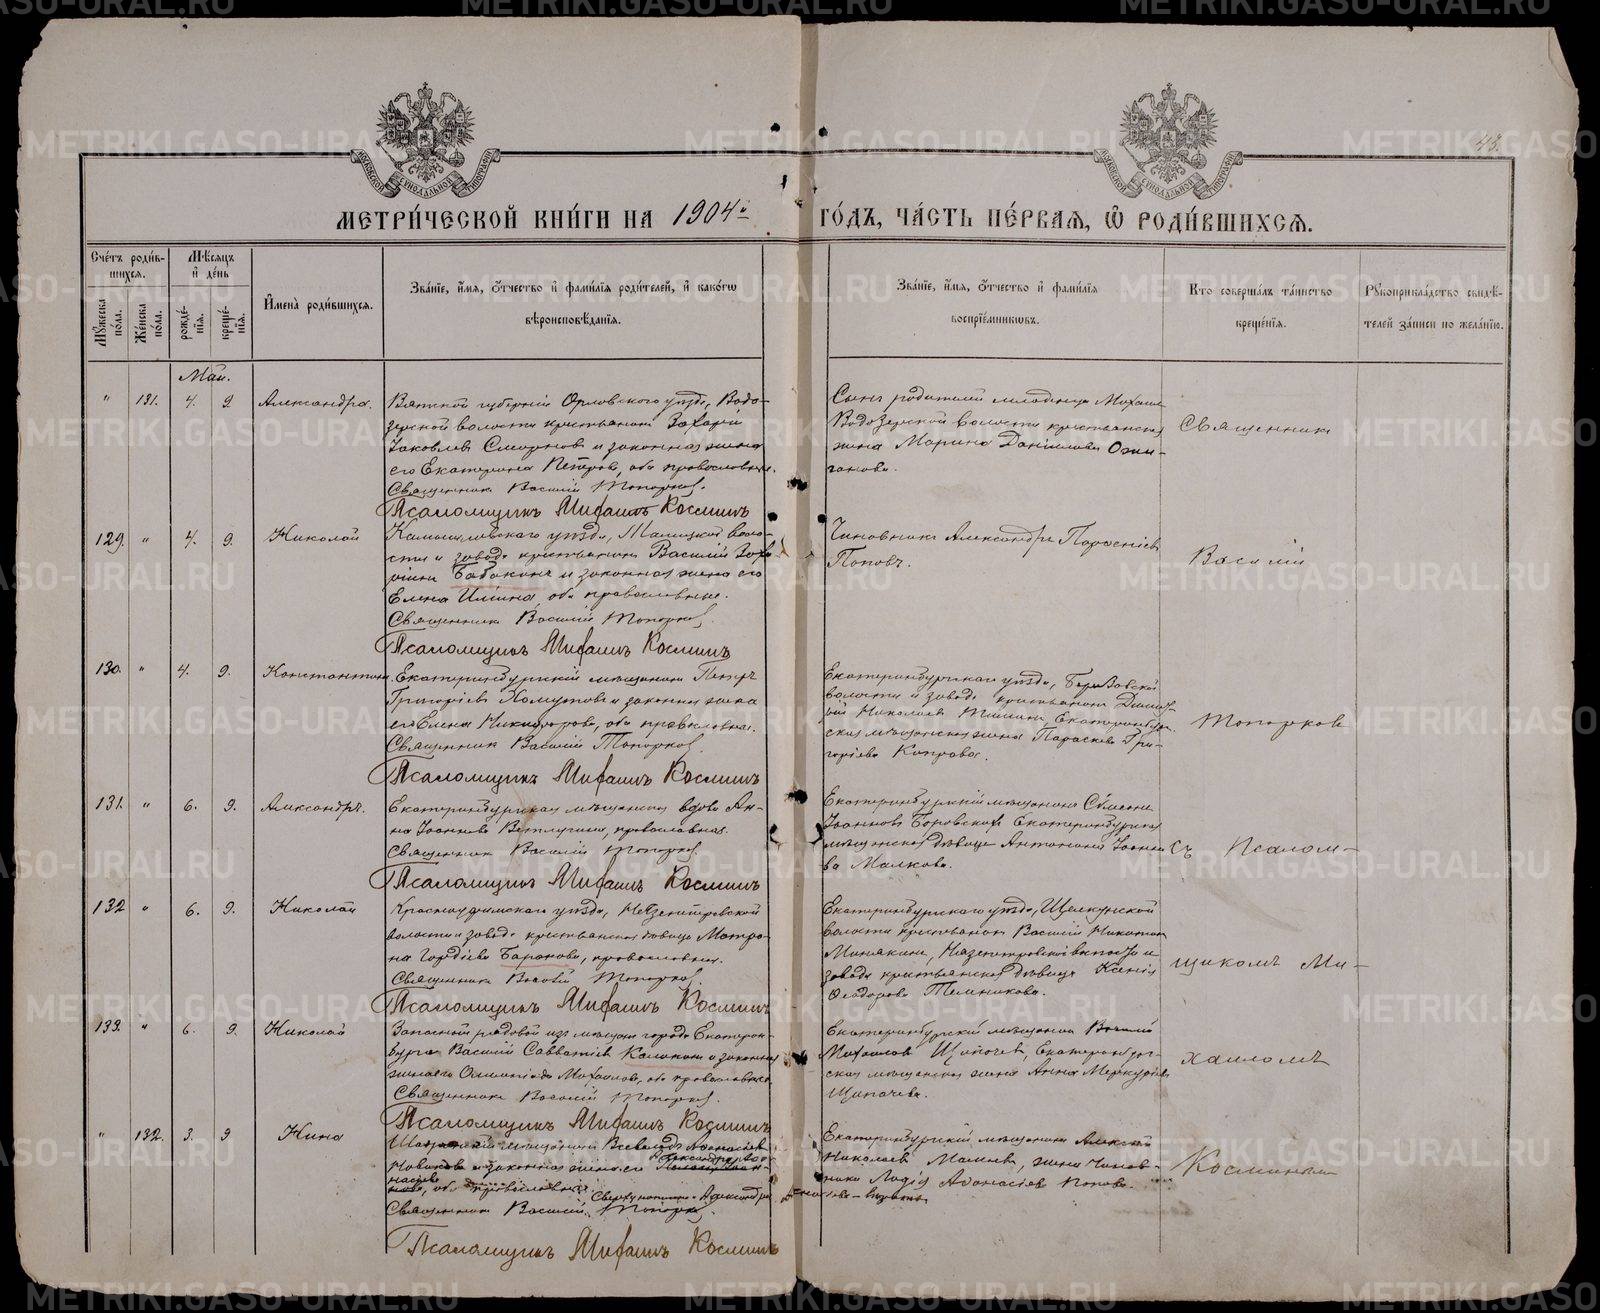 43.
МЕТРИ́ЧЕСКОЙ КНИ́ГИ НА 1904й ГО́ДЪ, ЧА́СТЬ ПЕ́РВАЯ, Ѡ҆ РОДИ́ВШИХСЯ.
МОСКОВСКОЙ СѴНОДАЛЬНОЙ ТИПОГРАФІИ
МОСКОВСКОЙ СѴНОДАЛЬНОЙ ТИПОГРАФІИ
Сче́тъ роди́в-
шихся.
Мꙋ́жеска по́ла.
Же́нска по́ла.
Мѣ́сяцъ
и҆ де́нь
рожде́-
нія.
креще́-
нія.
И҆мена̀ роди́вшихся.
Зва́ніе, и҆́мя, ѻ҆́тчество и҆ фами́лія роди́телей, и҆ како́гѡ
вѣроисповѣ́данія.
Зва́ніе, и҆́мя, ѻ҆́тчество и҆ фами́лія
воспріе́мникѡвъ.
Кто̀ соверша́лъ та́инство
креще́нія.
Рꙋкоприкла́дство свидѣ́-
телей за́писи по жела́нію.
Май.
" 131. 4. 9. Александра.
Вятской губерніи Орловского уѣзда, Водо-
зерской волости крестьянинъ Захарій
Іаковлевъ Смирновъ и законная жена
его Екатерина Петрова, оба православные.
Священникъ Василій Топорковъ.
Псаломщикъ Михаилъ Косминъ
Сынъ родителей младенца Михаилъ
Водозерской волости крестьянская
жена Марина Даніилова Ожи-
ганова.
129. " 4. 9. Николай
Камышловскаго уѣзда, Талицкой воло-
сти и завода крестьянинъ Василій
Бабакинъ и законная жена его
Елена Ильина, оба православные.
Священникъ Василій Топорковъ.
Псаломщикъ Михаилъ Косминъ
Чиновникъ Александръ
Поповъ.
130. " 4. 9. Константинъ.
Екатеринбургскій мѣщанинъ Петръ
Григоріевъ Хомутовъ и законная жена
его Елена Никифорова, оба православные.
Священникъ Василій Топорковъ.
Псаломщикъ Михаилъ Косминъ
Екатеринбургскаго уѣзда, Березовской
волости и завода крестьянинъ Димит-
рій Николаевъ Екатеринбург-
ская мѣщанская жена Параскева Гри-
горіева Копрова.
131. " 6. 9. Александръ.
Екатеринбургская мѣщанская вдова Ан-
на Іоаннова Ветлугина, православная.
Священникъ Василій Топорковъ.
Псаломщикъ Михаилъ Косминъ
Екатеринбургскій мѣщанинъ Сѵмеонъ
Іоанновъ Боровскихъ Екатеринбургская
мѣщанская дѣвица Антонина Іоанно-
ва Малкова.
132 " 6. 9. Николай
Красноуфимскаго уѣзда, Нязепетровской
волости и завода крестьянская дѣвица Матро-
на Гордіева Баранова, православная.
Священникъ Василій Топорковъ.
Псаломщикъ Михаилъ Косминъ
Екатеринбургскаго уѣзда, Щелкунской
волости крестьянинъ Василій Никитинъ
Минякинъ, Нязепетровской волости и
завода крестьянская дѣвица Ксенія
Ѳеодорова Темникова.
133. " 6. 9. Николай
Запасный рядовой изъ мѣщанъ города Екатерин-
бурга Василій Савватіевъ Калининъ и законная
жена его Олимпіада Михаилова, оба православные.
Священникъ Василій Топорковъ.
Псаломщикъ Михаилъ Косминъ
Екатеринбургскій мѣщанинъ Василій
Михаиловъ Щипачевъ, Екатеринбург-
ская мѣщанская жена Анна Меркуріева
Щипачева.
" 132. 3. 9 Нина
мѣщанинъ Всеволодъ Аѳанасіевъ
Новиковъ и законная жена его
оба православные. Сверху написано: Александра
Священникъ Василій Топорковъ.
Псаломщикъ Михаилъ Косминъ
Екатеринбургскій мѣщанинъ Алексій
Николаевъ Малѣевъ, жена чинов-
ника Лидія Аѳанасіева Попова.
Священникъ
Василій
Топорковъ
съ Псалом-
щикомъ Ми-
хаиломъ
Косминымъ